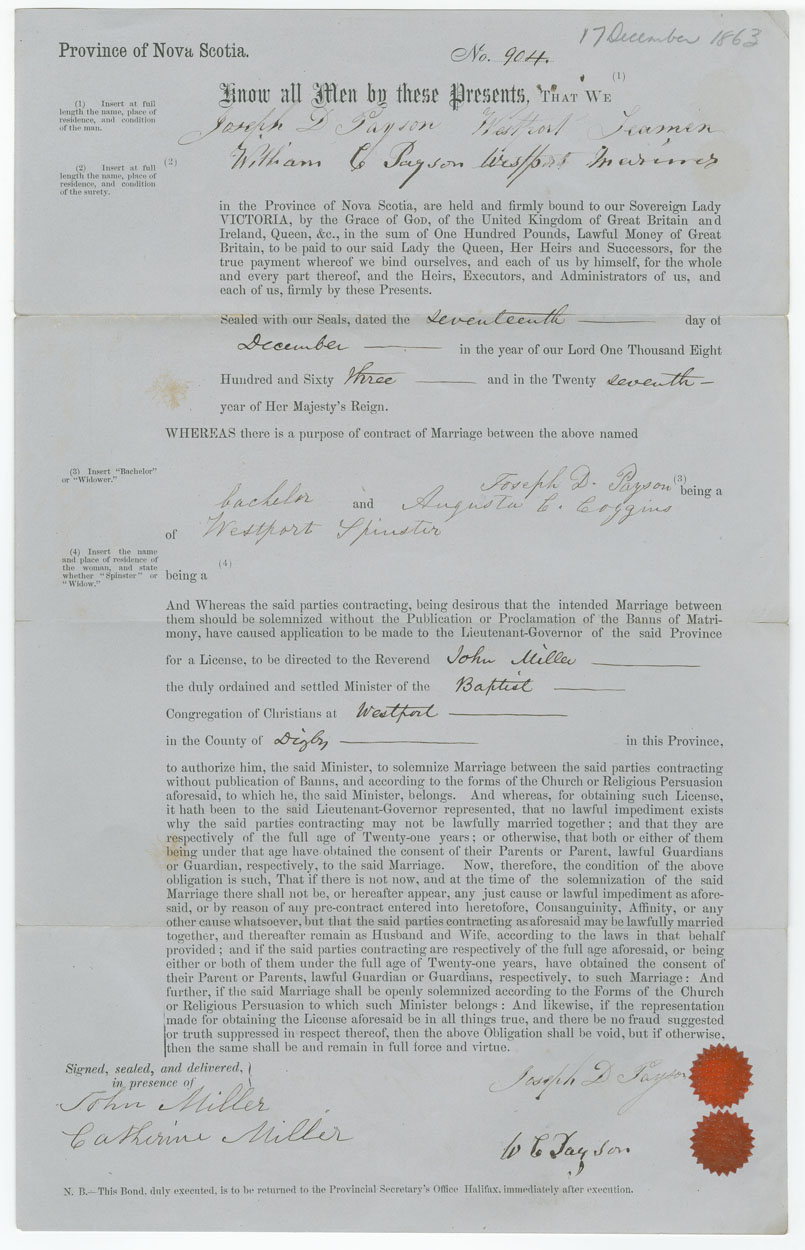 17 December 1863
Province of Nova Scotia.
No. 904.
Know all Men by these Presents, THAT WE (1)
(1) Insert at full
length the name, place of
residence, and condition
of the man.
Joseph D Payson Westport Seamen
(2) Insert at full
length the name, place of
residence, and condition
of the surety.
(2) William C Payson Westport Mariner
in the Province of Nova Scotia, are held and firmly bound to our Sovereign Lady
VICTORIA, by the Grace of GOD, of the United Kingdom of Great Britain and
Ireland, Queen, &c., in the sum of One Hundred Pounds, Lawful Money of Great
Britain, to be paid to our said Lady the Queen, Her Heirs and Successors, for the
true payment whereof we bind ourselves, and each of us by himself, for the whole
and every part thereof, and the Heirs, Executors, and Administrators of us, and
each of us, firmly by these Presents.
Sealed with our Seals, dated the seventeenth day of
December in the year of our Lord One Thousand Eight
Hundred and Sixty three and in the Twenty seventh
year of Her Majesty's Reign.
WHEREAS there is a purpose of contract of Marriage between the above named
(3) Insert "Bachelor"
or "Widower."
Joseph D. Payson (3) being a
bachelor and Augusta C. Coggins
of Westport Spinster
(4) Insert the name
and place of residence of
the woman, and state
whether "Spinster" or
"Widow."
(4)
being a
And Whereas the said parties contracting, being desirous that the intended Marriage between
them should be solemnized without the Publication or Proclamation of the Banns of Matri-
mony, have caused application to be made to the Lieutenant-Governor of the said Province
for a License, to be directed to the Reverend John Miller
the duly ordained and settled Minister of the Baptist
Congregation of Christians at Westport
in the County of Digby in this Province,
to authorize him, the said Minister, to solemnize Marriage between the said parties contracting
without publication of Banns, and according to the forms of the Church or Religious Persuasion
aforesaid, to which he, the said Minister, belongs. And whereas, for obtaining such License,
it hath been to the said Lieutenant-Governor represented, that no lawful impediment exists
why the said parties contracting may not be lawfully married together; and that they are
respectively of the full age of Twenty-one years; or otherwise, that both or either of them
being under that age have obtained the consent of their Parents or Parent, lawful Guardians
or Guardian, respectively, to the said Marriage. Now, therefore, the condition of the above
obligation is such, That if there is not now, and at the time of the solemnization of the said
Marriage there shall not be, or hereafter appear, any just cause or lawful impediment as afore-
said, or by reason of any pre-contract entered into heretofore, Consanguinity, Affinity, or any
other cause whatsoever, but that the said parties contracting as aforesaid may be lawfully married
together, and thereafter remain as Husband and Wife, according to the laws in that behalf
provided; and if the said parties contracting are respectively of the full age aforesaid, or being
either or both of them under the full age of Twenty-one years, have obtained the consent of
their Parent or Parents, lawful Guardian or Guardians, respectively, to such Marriage: And
further, if the said Marriage shall be openly solemnized according to the Forms of the Church
or Religious Persuasion to which such Minister belongs: And likewise, if the representation
made for obtaining the License aforesaid be in all things true, and there be no fraud suggested
or truth suppressed in respect thereof, then the above Obligation shall be void, but if otherwise,
then the same shall be and remain in full force and virtue.
Signed, sealed, and delivered,
in presence of
Joseph D Payson
John Miller
Catherine Miller
W C Payson
N. B.—This Bond, duly executed, is to be returned to the Provincial Secretary's Office Halifax, immediately after execution.